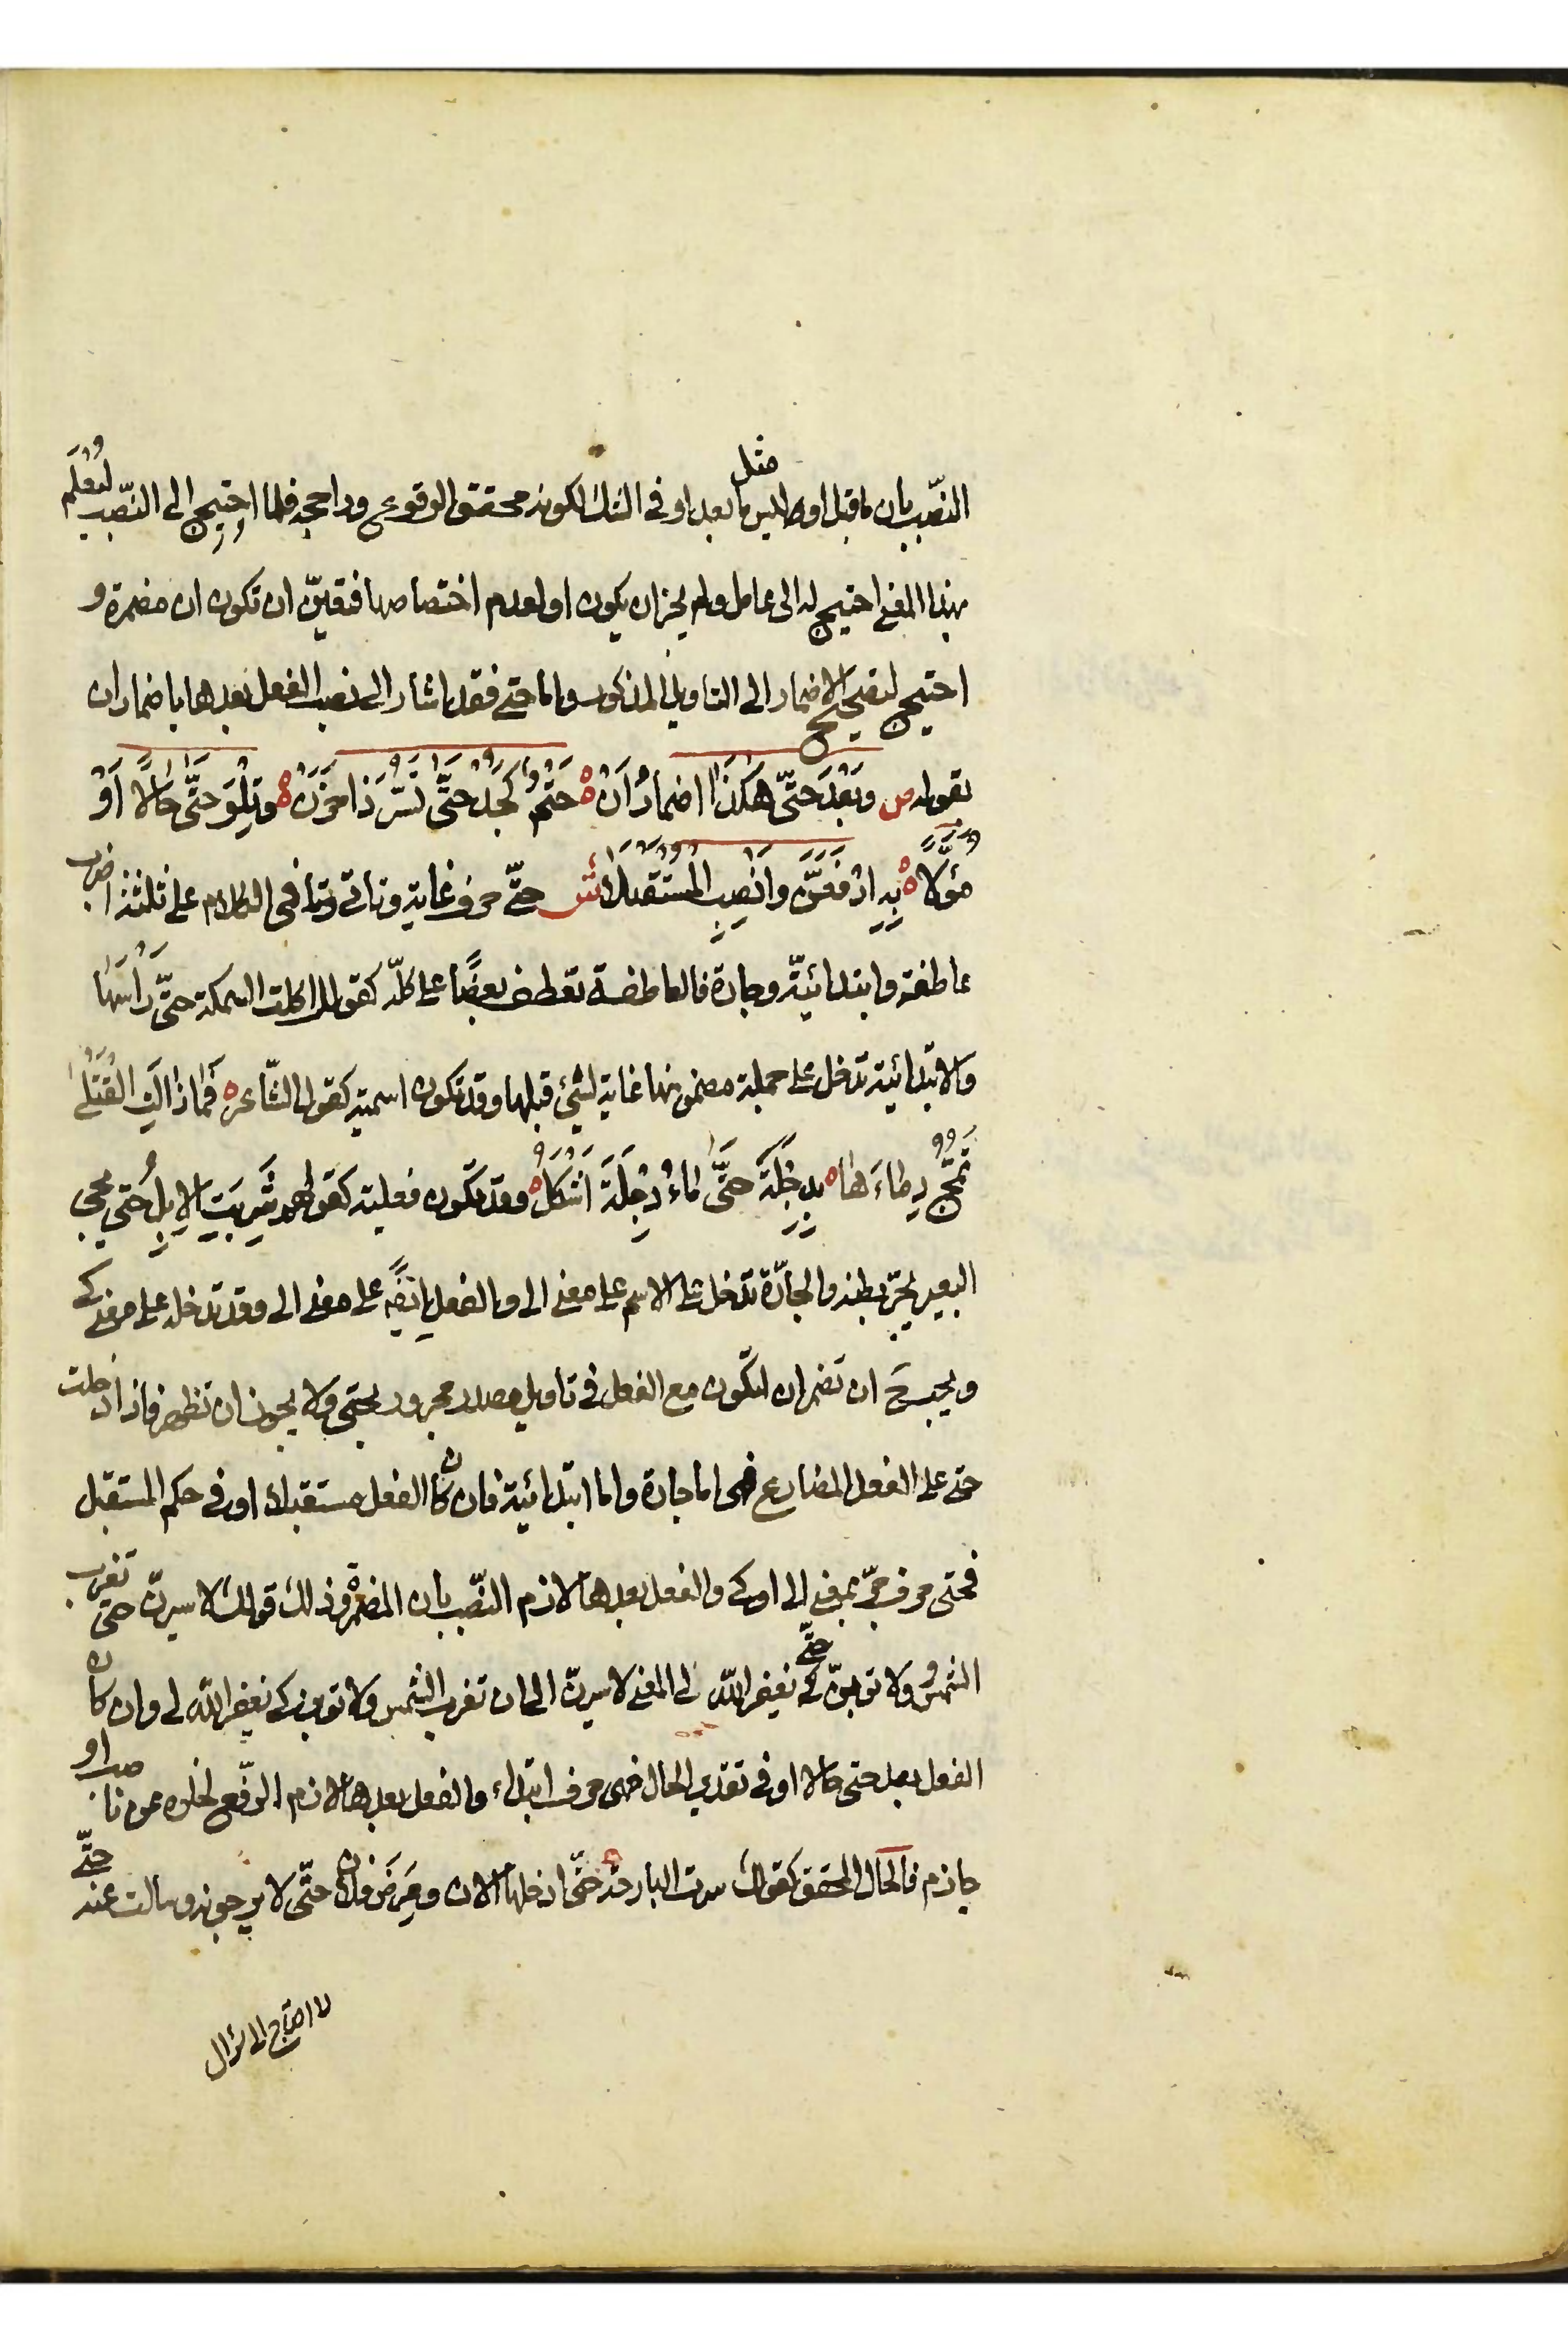 النّصب بان ما قبل او ليس مثل ما بعد او في الشك لكونه محقق الوقوع وراجحه فلما احتيج الى النّصب ليُعْلَم
بهذا المعنى احتيج له الى عامل ولم يجز ان يكون او لعدم اختصاصها فتعيّن ان تكون ان مضمرة و
احتيج لتصحيح الاضمار الى التاويل المذكور واما حتى فقد اشار الى نصب الفعل بعدها باضمار ان
بقوله ص وَبَعْدَ حَتّى هكَذَا اضمارُ اَنْ ه حَتْمٌ كَجُدْ حتَّى تَسُرَّ ذَا حَزَنْ ه وتِلْوَ حتَّى حالاً اَوْ
مُؤَوَّلاً ه بِهِ ارْفَعَنَّ وَانْصِبِ المُسْتَقْبَلا ش حتّى حرف غاية وتاتي في الكلام على ثلثة اضرب
عاطفة وابتدائيّة وجارة فالعاطفة تعطف بعضًا على كلّه كقولك اكلت السمكة حتَّى رَأسَها
والابتدائية تدخل على جملة مضمونها غاية لشئ قبلها وقد تكون اسمية كقول الشّاعر ه فَمَا زالَتِ القَتْلى
تَمُجُّ دِماءَها ه بِدِجْلَةَ حتَّى ماءُ دِجْلَةَ اَشْكَلُ ه وقد تكون فعلية كقولهم شَرِبَتِ الابِلُ حتى يجئ
البعير يجرّ بطنه والجارّة تدخل على الاسم على معنى الى والفعل ايضًا على معنى الى وقد تدخله على معنى كى
ويجب ح ان تضمر ان لتكون مع الفعل في تاويل مصدر مجرور بحتى ولا يجوز ان تظهر فاذا دخلت
حتى على الفعل المضارع فهى اما جارة واما ابتدائية فان كان الفعل مستقبلا او في حكم المستقبل
فحتى حرف جرّ بمعنى الى او كى والفعل بعدها لازم النّصب بان المضمرة وذلك قولك لاسيرنّ حتى تغرب
الشّمس ولاتوبنّ حتّى يغفر الله لى المعنى لاسيرنّ الى ان تغرب الشمس ولاتوبن كى يغفر الله لى وان كان
الفعل بعد حتى حالا او في تقدير الحال فهى حرف ابتداء والفعل بعدها لازم الرّفع لخلوه عن ناصب او
جازم فالحال المحقق كقولك سرت البارحة حتّى ادخلها الان ومَرِضَ فلان حتّى لا يرجونه وسالت عنه حتّى
لا احتاج الى سؤال